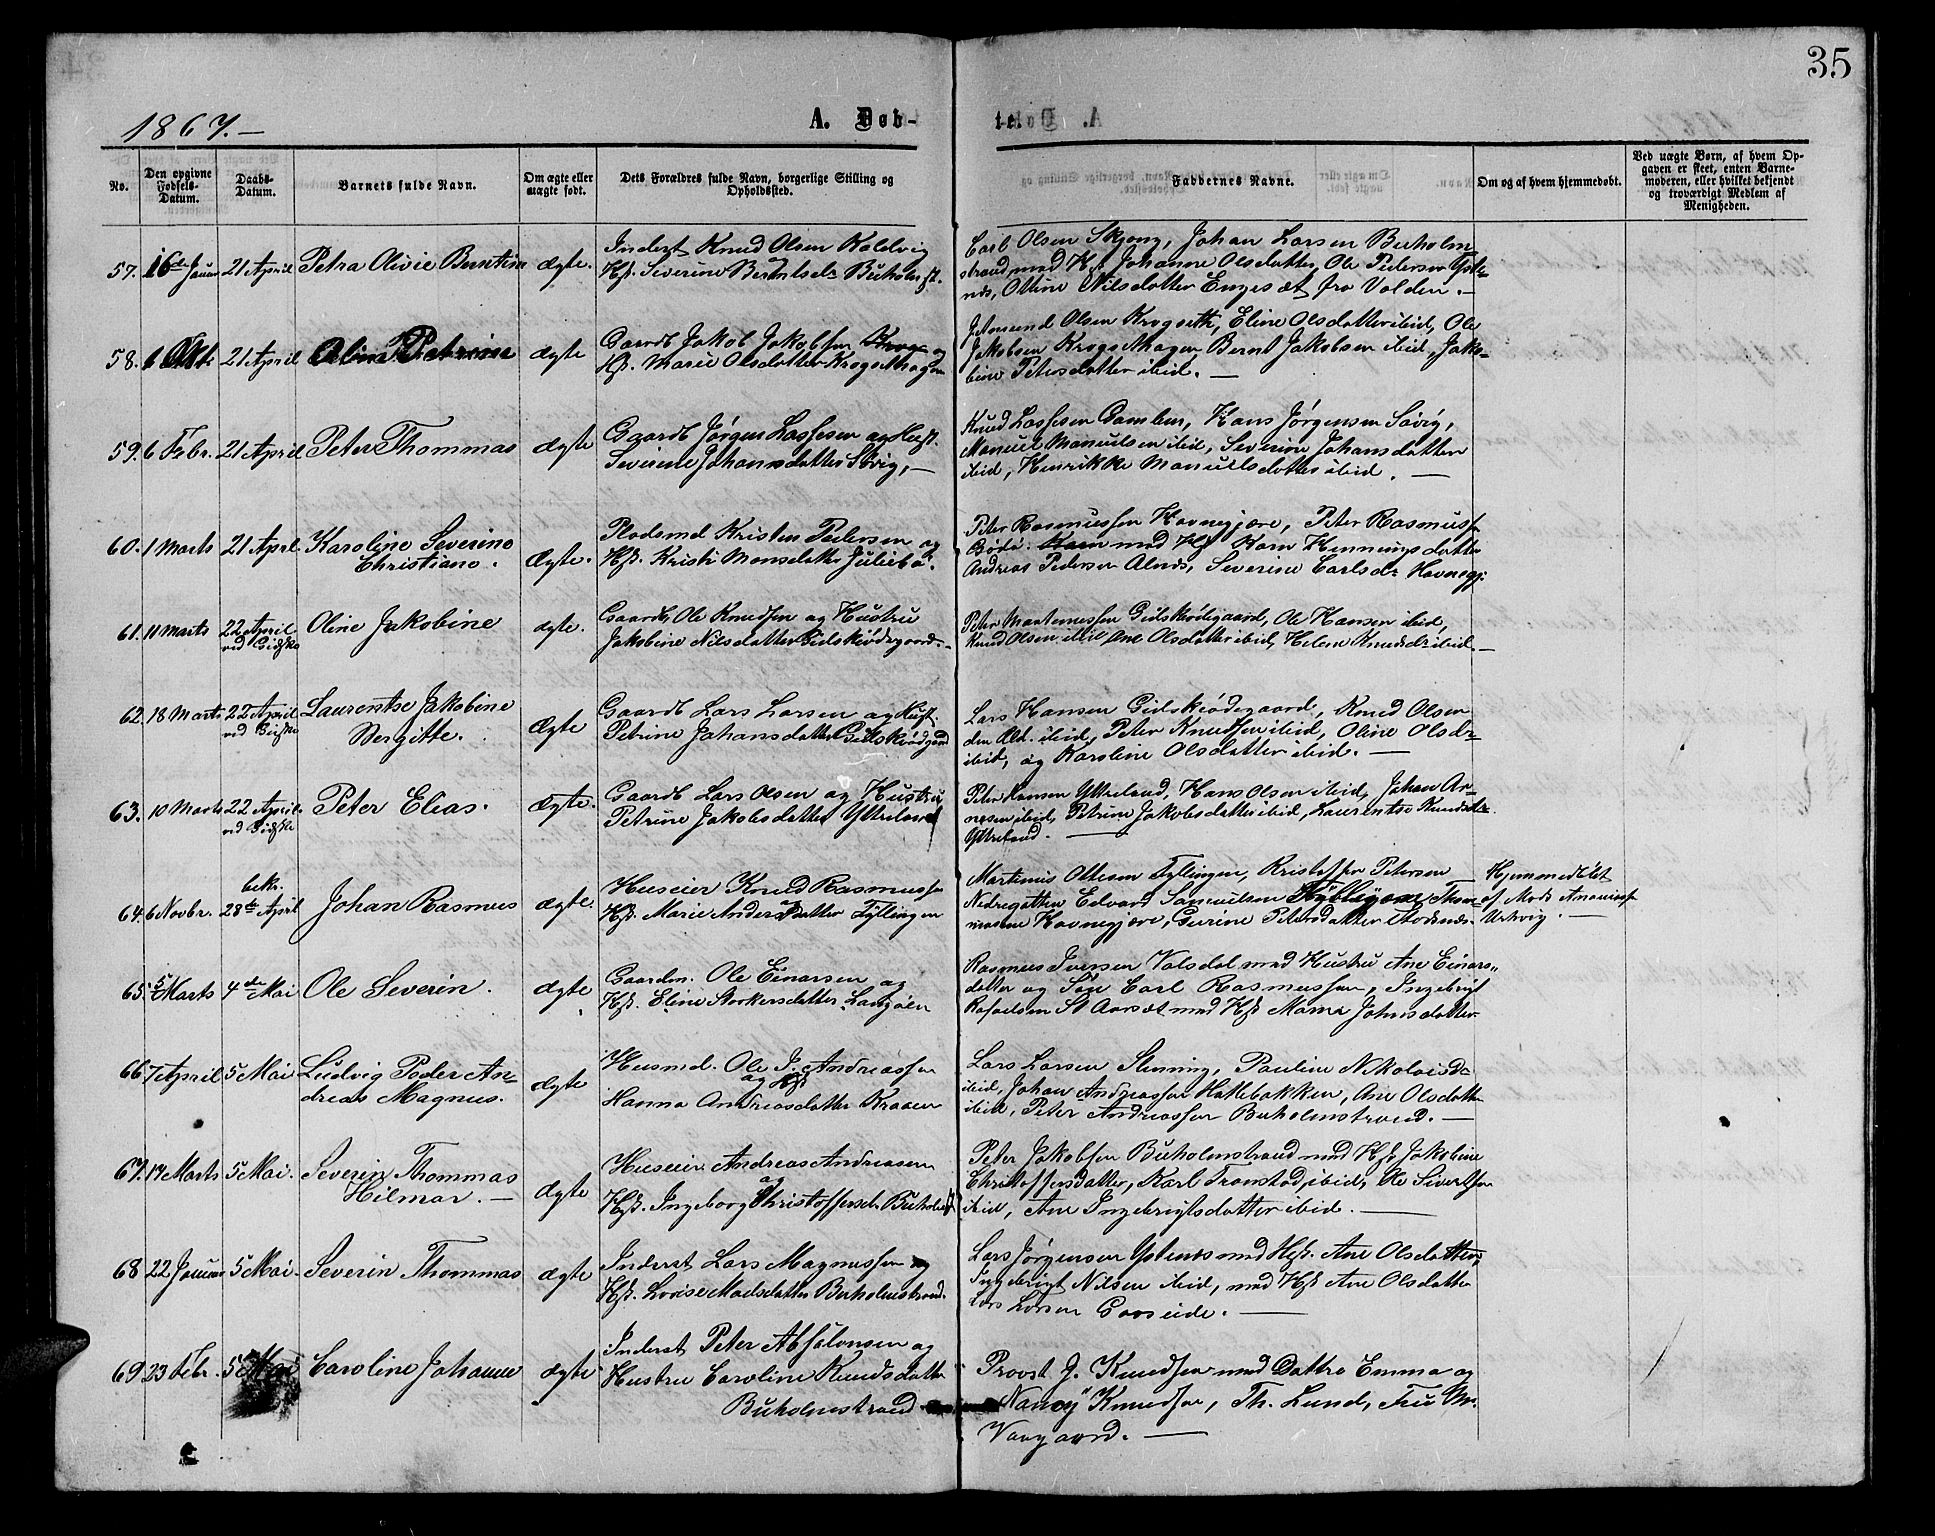 35
1867.—
A. Døb-
te.
No.
Den opgivne Fødsels-Datum.
Daabs-Datum.
Barnets fulde Navn.
Om ægte eller uægte født.
Dets Forældres fulde Navn, borgerlige Stilling og Opholdssted.
Faddernes Navne.
Om og af hvem hjemmedøbt.
Ved uægte Børn, af hvem Opgaven er skeet, enten Barnemoderen, eller hvilket bekjendt og troværdigt Medlem af Menigheden.
57. 16de Januar 21 April Petra Olivie Berntine ægte. Inderst Knud Olsen Kaldvig og
Hst. Severine Berntsdr Buholmst.
Carl Olsen Skjong, Johan Larsen Buholm
strand med Hst Johanne Olsdatter, Ole Pedersen Yste-
nes, Oline Nilsdatter Engesæt fra Volden.—
58. 6 Okt 21 April Oline Petrine ægte Gaardb Jakob Jakobsen og
Hst. Marie Olsdatter Krogsethagen
Amund Olsen Krogseth, Eline Olsdatter ibid, Ole
Jakobsen Krogsethagen Bernt Jakobsen ibid, Jako-
bine Petersdatter ibid.—
59. 6 Febr. 21 April Peter Thommas ægte Gaardb Jørgen Lassesen og Hust.
Severine Johansdatter Søvig,—
Knud Lassesen Gamlem, Hans Jørgensen Søvig,
Manuel Manuelsen ibid, Severine Johansdatter
ibid, Henrikke Manuelsdatter ibid.—
60. 1 Marts 21 April. Karoline Severine
Christiane. ægte. Pladsmd Kristen Pedersen og
Hst. Kristi Monsdatter Juliebø.
Peter Rasmussen Havnegjære, Peter Rasmuss.
Bødø. med Hst Karn Henningsdatter
Andreas Pedersen Alnes, Severine Carlsdr Havnegj.
61. 11 Marts 22 April
vid Gidske Oline Jakobine ægte. Gaardb, Ole Knudsen og Hustru
Jakobine Nilsdatter Gidskeødegaard.—
Peter Martinussen Gidskeødegaard, Ole Hansen ibid,
Knud Olsen ibid Ane Olsdatter ibid, Helene Knudsdr ibid.—
62. 18 Marts 22 April
vid Gidske Laurentse Jakobine
Bergitte. Ægte Gaardb Lars Larsen og Hust.
Petrine Johansdatter Gidskeødgard
Lars Hansen Gidskeødegaard, Knud Olsen
den Æld. ibid, Peter Knudsen ibid, Oline Olsdr
ibid, og Karoline Olsdatter ibid.—
63. 10 Marts 22 April
vid Gidske Peter Elias. Ægte. Gaardb Lars Olsen og Hustru
Petrine Jakobsdatter Ytterland
Peter Hansen Ytterland, Hans Olsen ibid, Johan Ar-
nesen ibid, Petrine Jakobsdatter ibid, Laurentse Knudsdtr
Ytterland.—
64. 6 Novbr. bekr.
28de April Johan Rasmus ægte. Huseier Knud Rasmussen
og Hst. Marie Andersdatter Fyllingen
Martinus Ottesen Fyllingen, Kristoffer Petersen
Nedregotten Edvard Samuelsen Thom-
massen Havnegjære, Gurine Petersdatter
Hjemmedøbt
af Mads Ananiass.
Urkevig.—
65. 5 Marts 4de Mai Ole Severin. ægte Gaardm. Ole Einarsen og
Hst. Eline Storkersdatter Langøen
Rasmus Iversen Valsdal med Hustru Ane Einars-
datter og Søn Carl Rasmussen, Ingebrigt
Rafaelsen St Aarset med Hst Marna Johnsdatter
66. 7 April 5 Mai Ludvig Peder An-
dreas Magnus. ægte Husmd. Ole J. Andreassen
og Hst
Hanna Andreasdatter Kraaen
Lars Larsen Slinning, Pauline Nikolaisdr
ibid, Johan Andreassen Hatlebakken, Ane Olsdatter
ibid, Peter Andreassen Buholmstrand.—
67. 17 Marts 5 Mai. Severin Thommas
Hilmar.— ægte Huseier Andreas Andreasen
og
Hst. Ingeborg Christoffersdr Buholmst
Peter Jakobsen Buholmstrand med Hst Jakobine
Christoffersdatter, Karl Tronstad ibid, Ole Sivertsen
ibid, Ane Ingebrigtsdatter ibid.—
68 22 Januar 5 Mai. Severin Thommas ægte Inderst Lars Magnussen og
Hst. Lovise Madsdatter Buholmstrand.
Lars Jørgensen Ystenes med Hst. Ane Olsdatter,
Ingebrigt Nilsen ibid, med Hst Ane Olsdatter
Lars Larsen Gaaseide.—
69. 23 Febr. 5 Mai Caroline Johanne ægte Inderst Peter Absalonsen og
Hustru Caroline Knudsdatter
Buholmstrand
Provst J. Knudsen med Døttre Emma og
Nancy Knudsen, Th. Lund, Fru M.
Vaagaard.—